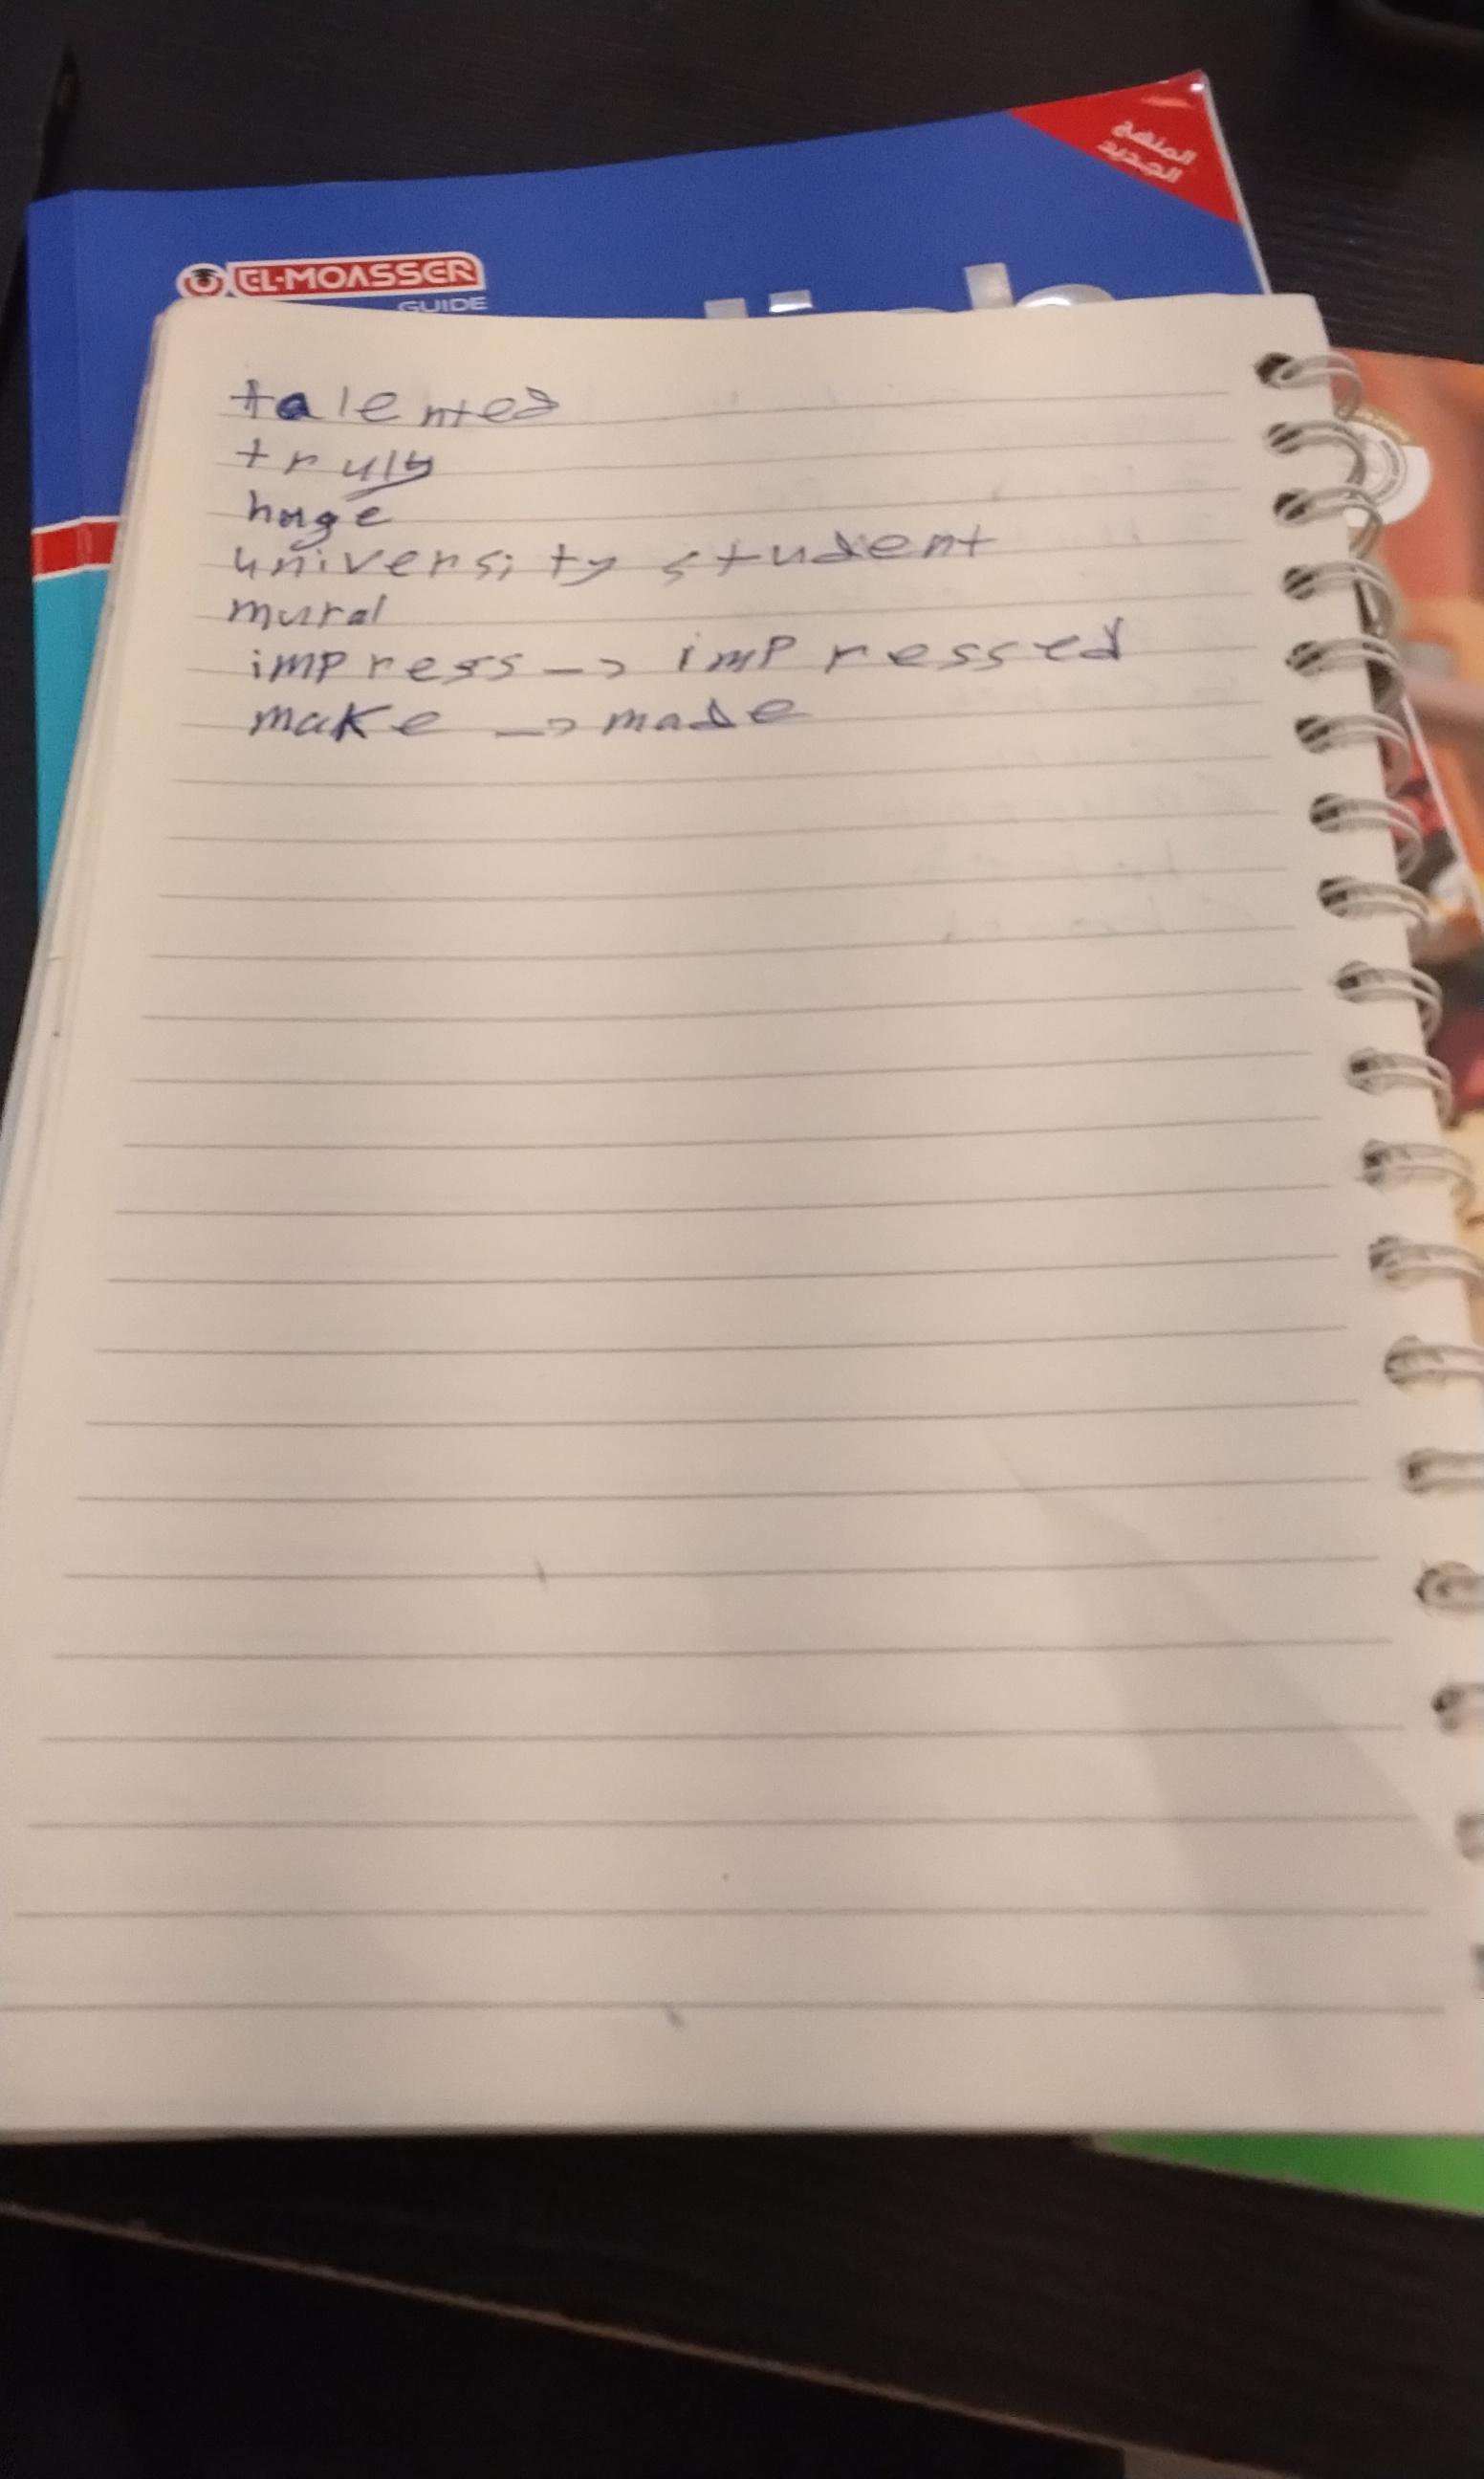 المنهج
الجديد
EL-MOASSER
GUIDE
talented
truly
huge
university student
mural
impress -> impressed
make -> made